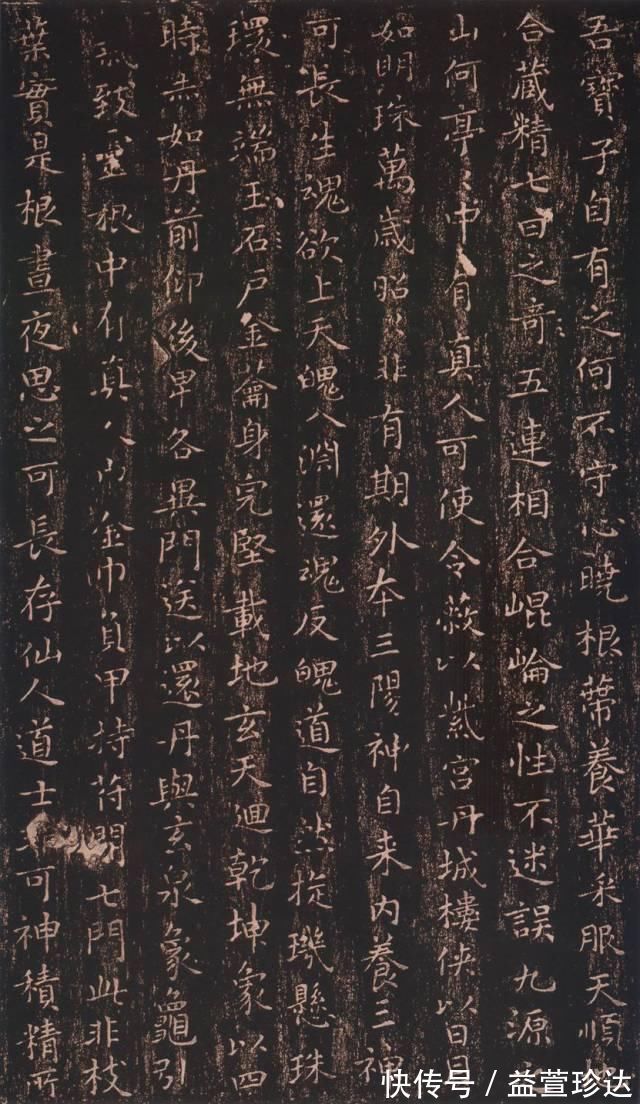 吾寶子自有之何不守心曉根蔕養華采服天順
合藏精七日之奇五連相合崐崘之性不迷誤九源之
山何亭〻中有真人可使令蔽以紫宫丹城樓俠以日月
如明珠萬歳昭〻非有期外本三陽神自来内養三神
可長生魂欲上天魄入淵還魂反魄道自然㨁璣懸珠
環無端玉石戸金蘥身完堅載地玄天迴乾坤象以四
時赤如丹前仰後卑各異門送以還丹與玄泉象龜引
氣致靈根中有真人巾金巾負甲持苻開七門此非枝
葉實是根晝夜思之可長存仙人道士可神積精所
快传号／益萱珍达